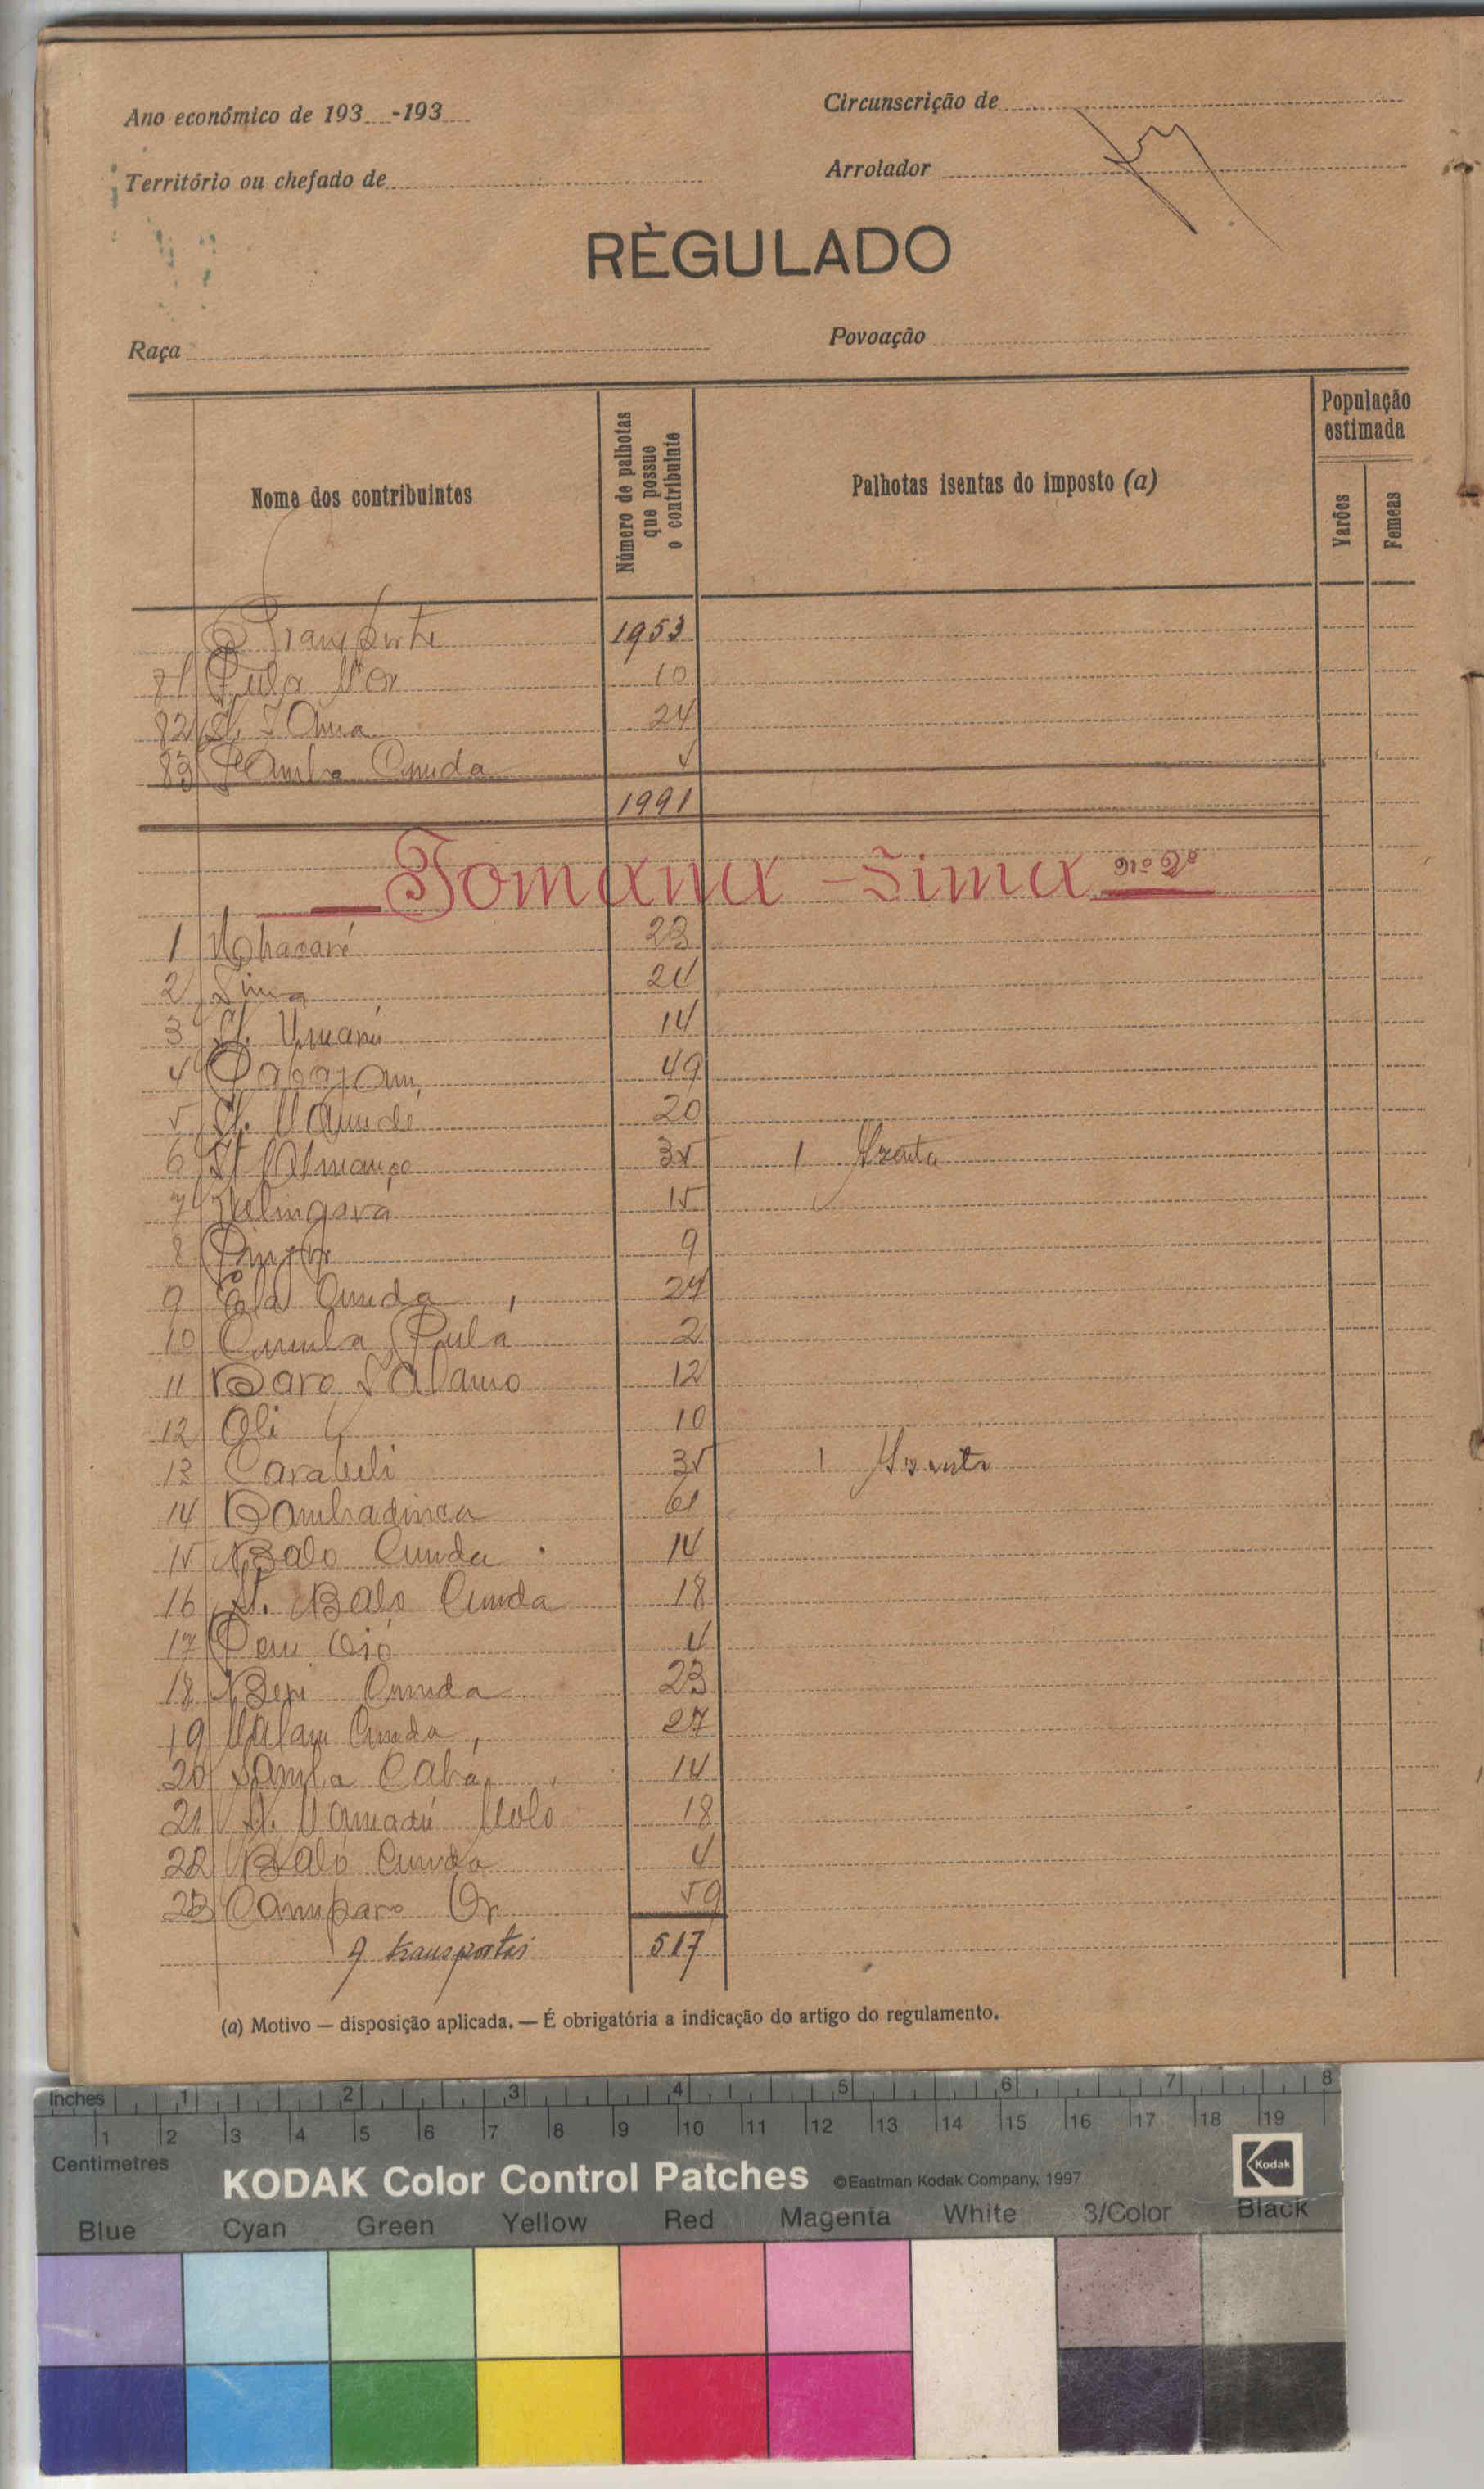 Ano económico de 193 -193
Circunscrição de
Território ou chefado de
Arrolador
RÈGULADO
Raça
Povoação
Nome dos contribuintes
Número de palhotas que possue o contribuinte
Palhotas isentas do imposto (a)
População estimada
Varões
Femeas
Transporte 1953
81 10
82 24
83 Cunda 4
1991
Tomana - Sima nº 2º
1 23
2 Sima 24
3 St. Umarú 14
4 49
5 St. 20
6 St. 35 1 Isenta
7 15
8 9
9 Cunda 24
10 Cumba Pula 2
11 Baro 12
12 Ali 10
13 Carabeli 35 1 Isenta
14 Bambadinca 61
15 Balo Cunda 14
16 St. Balo Cunda 18
17 4
18 Cunda 23
19 Malam Cunda 27
20 Samba 14
21 St. Mamadú 18
22 Baló Cunda 4
23 Camparo Or 59
A transportar 517
(a) Motivo — disposição aplicada. — É obrigatória a indicação do artigo do regulamento.
Inches 1 2 3 4 5 6 7 8
1 2 3 4 5 6 7 8 9 10 11 12 13 14 15 16 17 18 19
Centimetres
KODAK Color Control Patches ©Eastman Kodak Company, 1997 Kodak
Blue Cyan Green Yellow Red Magenta White 3/Color Black